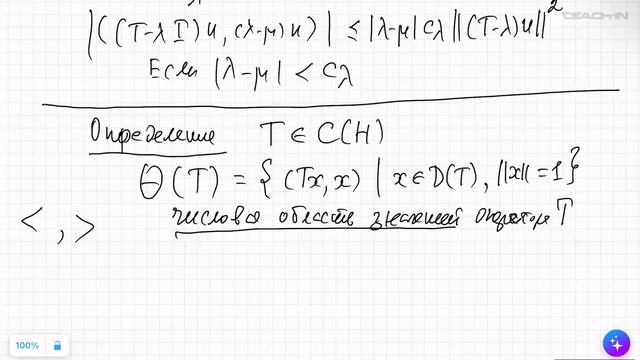 TEACH-IN
|((T-λI)u, (λ-μ)u)| ≤ |λ-μ| c_λ ||(T-λ)u||²
Если |λ-μ| < c_λ
Определение T ∈ C(H)
Θ(T) = { (Tx, x) | x ∈ D(T), ||x|| = 1 }
числовая область значений оператора T
< , >
100%